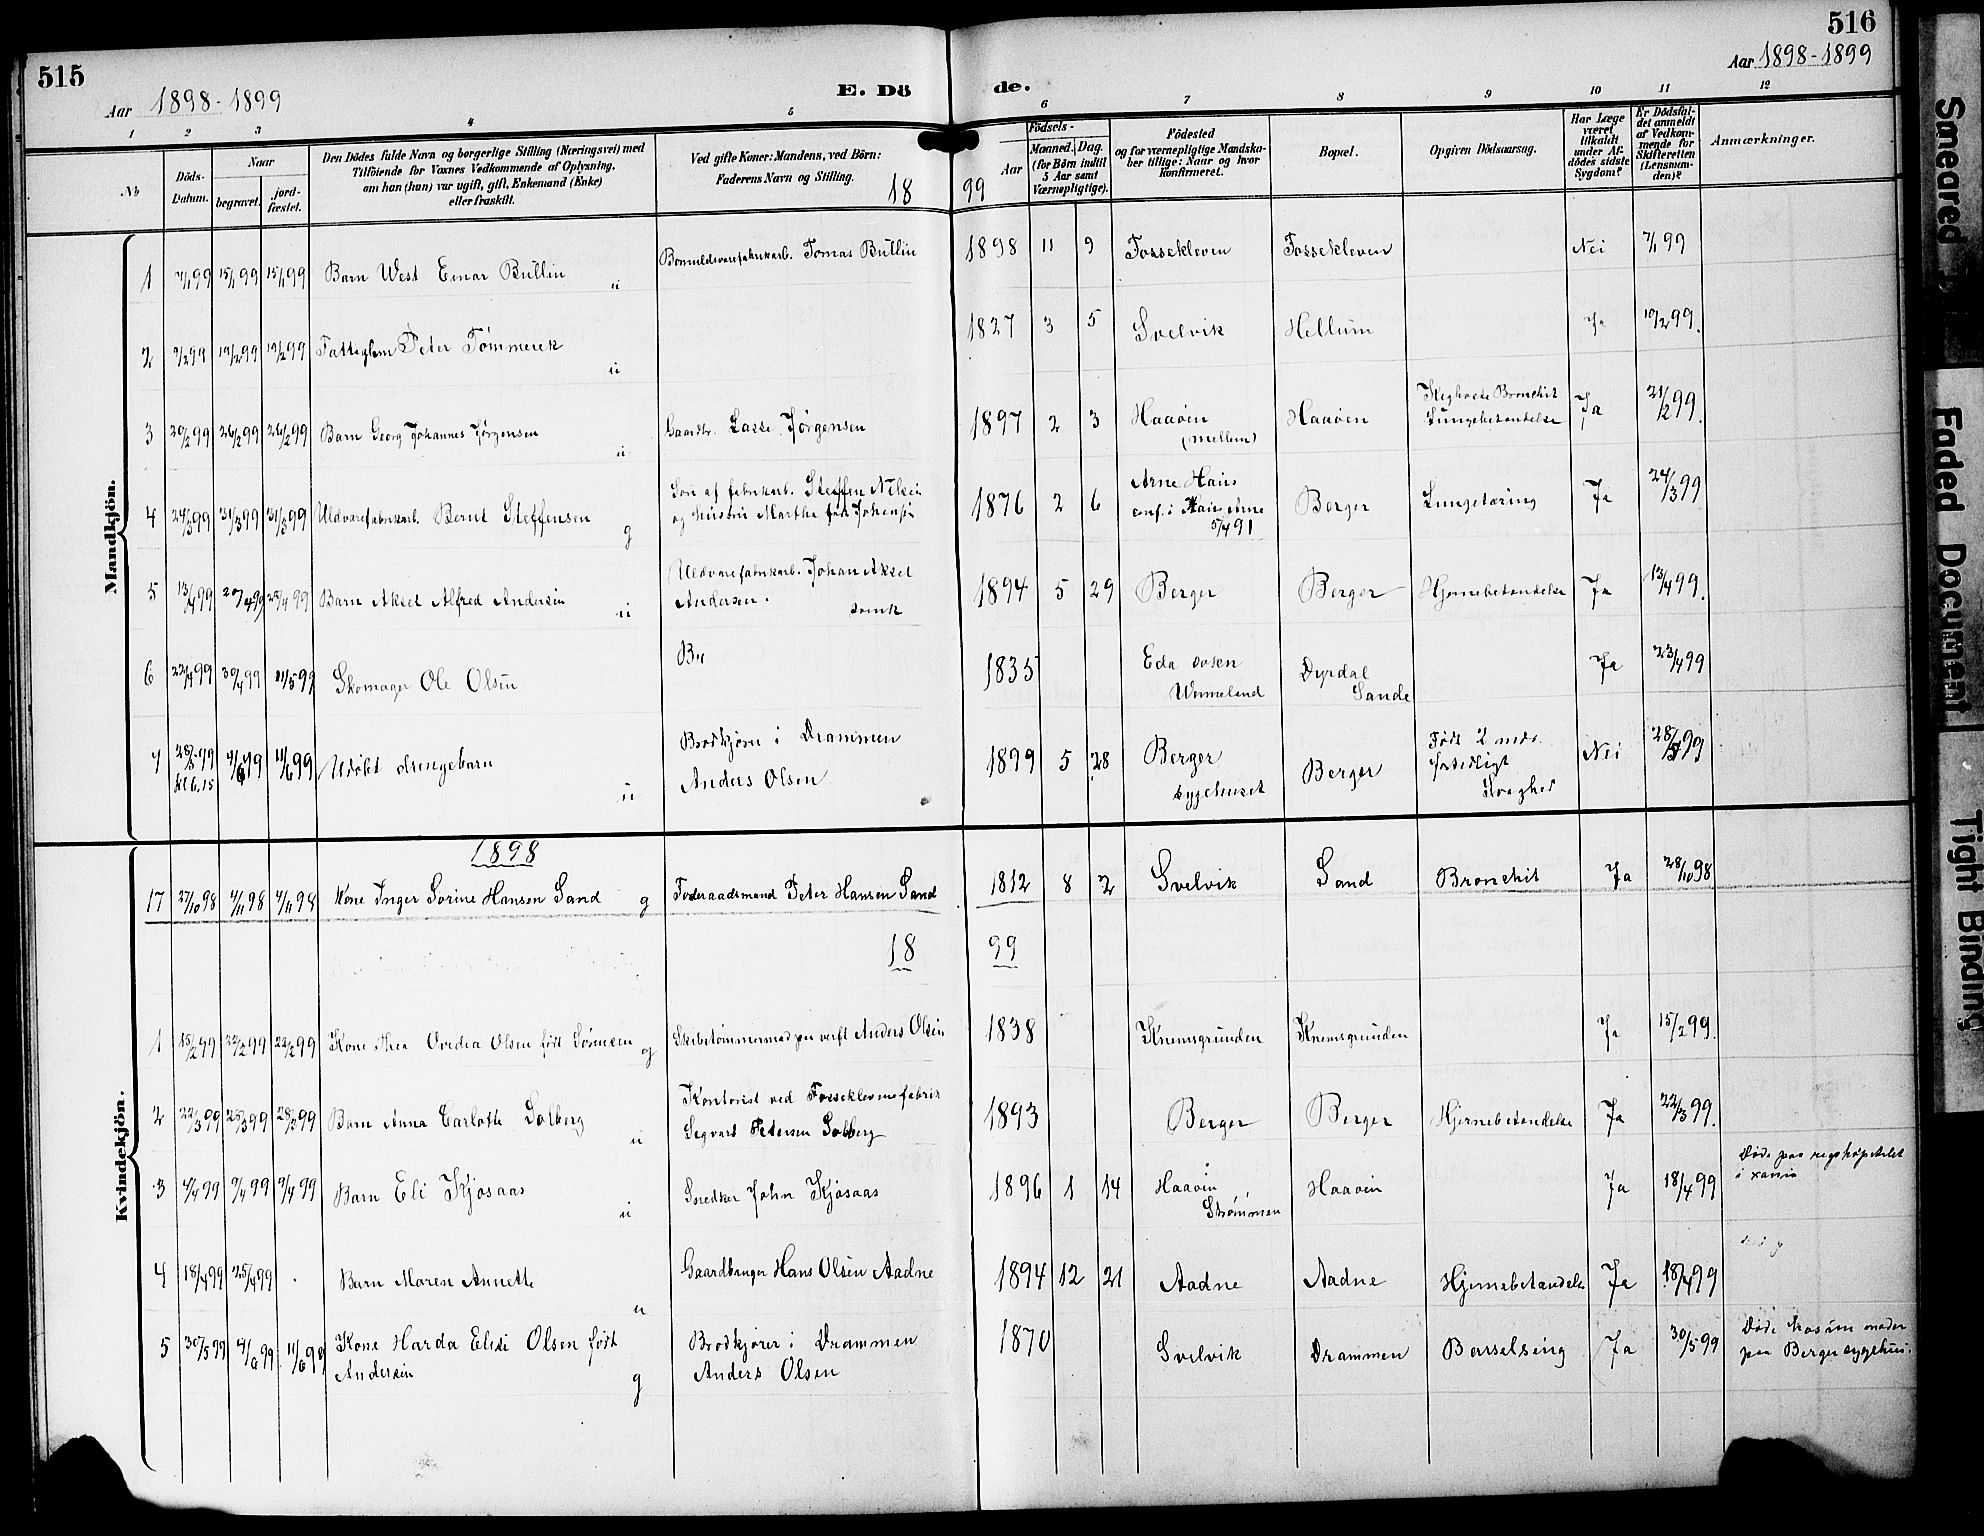 515
Aar 1898-1899
E. Dö
de.
516
Aar 1898-1899
1 2 3 4 5 6 7 8 9 10 11 12
No
Döds-
Datum.
Naar
begravet.
jord-
fæstet.
Den Dödes fulde Navn og borgerlige Stilling (Næringsvei) med
Tilföiende for Voxnes Vedkommende af Oplysning,
om han (hun) var ugift, gift, Enkemand (Enke)
eller fraskilt.
Ved gifte Koner: Mandens, ved Börn:
Faderens Navn og Stilling.
Födsels-
Aar
Maaned. Dag.
(for Börn indtil
5 Aar samt
Værnepligtige).
Födested
og for værnepligtige Mandska-
ber tillige: Naar og hvor
konfirmeret.
Bopæl.
Opgiven Dödsaarsag.
Har Læge
været
tilkaldt
under Af-
dödes sidste
Sygdom?
Er Dödsfal-
det anmeldt
af Vedkom-
mende for
Skifteretten
(Lensman-
den)?
Anmærkninger.
18 99
Mandkjön.
1 7/1 99 15/1 99 15/1 99 Barn West Einar Bullin u Bomuldsvarefabrikarb. Tomas Bullin 1898 11 9 Fossekleven Fossekleven Nei 7/1 99
2 9/2 99 19/2 99 19/2 99 Peter Tømmerek u 1827 3 5 Svelvik Hellum Ja 10/2 99.
3 20/2 99 26/2 99 26/2 99 Barn Georg Johannes Jørgensen u Gaardbr. Lasse Jørgensen 1897 2 3 Haaøen (mellem) Haaøen Kighoste Bronchit Lungebetændelse Ja 21/2 99.
4 24/3 99 31/3 99 31/3 99 Uldvarefabrikarb. Bernt Steffensen g Søn af fabrikarb. Steffen Nilsen
og hustru Martha 1876 2 6 Arne Hans Berger Lungetæring Ja 24/3 99
conf. i Arne
5/4 91
5 13/4 99 20/4 99 Barn Aksel Alfred Andersen u Uldvarefabrikarb. Johan Aksel
Andersen. svensk 1894 5 29 Berger Berger Hjernebetændelse Ja 13/4 99.
6 22/4 99 30/4 99 Skomager Ole Olsen 1835 Eda sogn Wermeland Dyrdal Sande Ja 23/4 99
7 28/5 99 kl 6.15 4/6 99 11/6 99 Udøbt drengebarn u Brødkjører i Drammen
Anders Olsen 1899 5 28 Berger sygehuset Berger Født 2 mdr. fortidligt Svaghed Nei 28/5 99
Kvindekjön.
1898
17 27/10 98 4/11 98 4/11 98 Kone Inger Sorine Hansen Sand g Føderaadsmand Peter Hansen Sand 1812 8 2 Svelvik Sand Bronchit Ja 28/10 98
18 99
1 15/2 99 22/2 99 22/2 99 Kone Thea Ovedia Olsen født Sørensen g Skibstømmermand paa verft Anders Olsen 1838 Knemsgrunden Knemsgrunden Ja 15/2 99.
2 22/3 99 28/3 99 28/3 99 Barn Anna Carlotte Solberg u Kontorist ved Fosseklevens fabrik
Segvard Petersen Solberg 1893 Berger Berger Hjernebetændelse Ja 22/3 99.
3 4/4 99 9/4 99 9/4 99 Barn Eli Kjosaas u Snedker John Kjosaas 1896 1 14 Haaøen Strømmen Haaøen Ja 18/4 99 Døde paa rigshospitalet
i
4 18/4 99 25/4 99 Barn Maren Annette u Gaardbruger Hans Olsen Aadne 1894 12 21 Aadne Aadne Hjernebetændelse Ja 18/4 99
5 30/5 99 4/6 99 11/6 99 Kone Harda Elisi Olsen født
Andersen g Brødkjører i Drammen
Anders Olsen 1870 Svelvik Drammen Barselseng Ja 30/5 99 Døde hos sin moder
paa Berger sygehus.
Smeared
Faded Document
Tight Binding